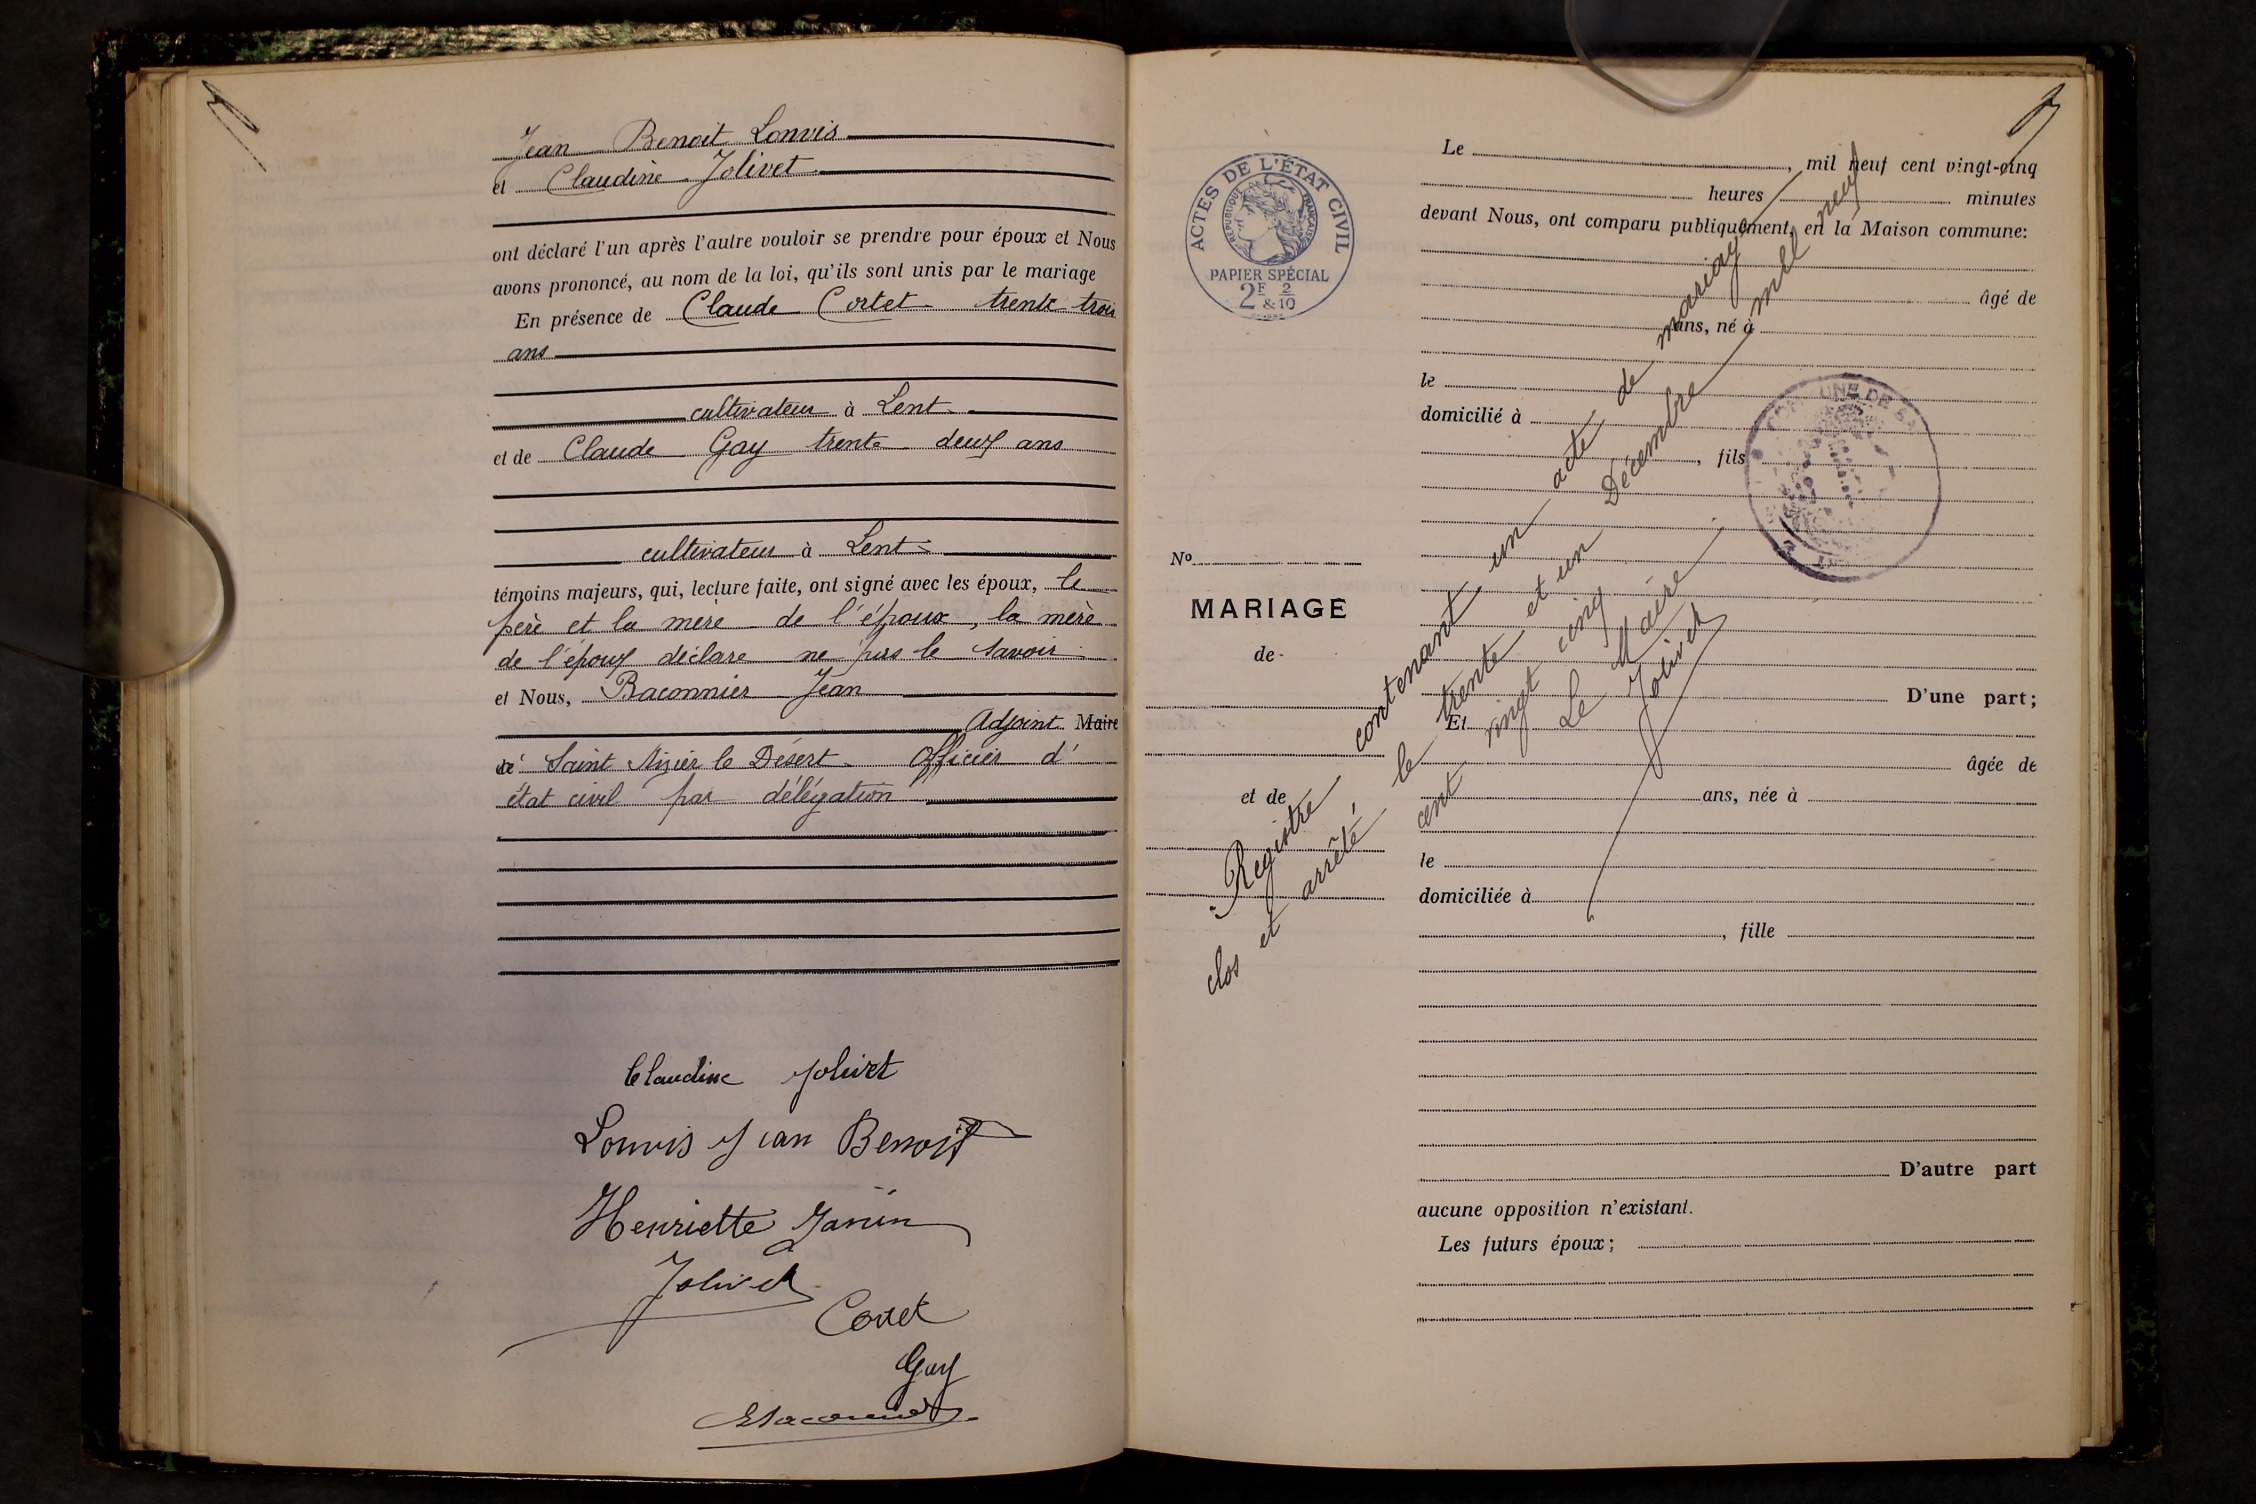 Jean Benoit Lonvis
et Claudine Jolivet
ont déclaré l'un après l'autre vouloir se prendre pour époux et Nous
avons prononcé, au nom de la loi, qu'ils sont unis par le mariage
En présence de Claude Cortet trente trois
ans
cultivateur à Lent
et de Claude Gay trente deux ans
cultivateur à Lent
témoins majeurs, qui, lecture faite, ont signé avec les époux, le
père et la mère de l'époux, la mère
de l'époux déclare ne pas le savoir
et Nous, Raconnier Jean
Adjoint Maire
de Saint Nizier le Désert Officier d'
état civil par délégation
Claudine Jolivet
Lonvis Jean Benoit
Henriette Janin
Jolivet
Cortet
Gay
ACTES DE L'ÉTAT CIVIL
RÉPUBLIQUE FRANÇAISE
PAPIER SPÉCIAL
2F & 2/10
No
MARIAGE
de
et de
Le , mil neuf cent vingt-cinq
heures minutes
devant Nous, ont comparu publiquement, en la Maison commune:
âgé de
ans, né à
le
domicilié à
, fils
D'une part;
Et
âgée de
ans, née à
le
domiciliée à
, fille
D'autre part
aucune opposition n'existant.
Les futurs époux;
Registre contenant un acte de mariage
clos et arrêté, le trente et un Décembre mil neuf
cent vingt cinq
Le Maire
Jolivet
COMMUNE DE